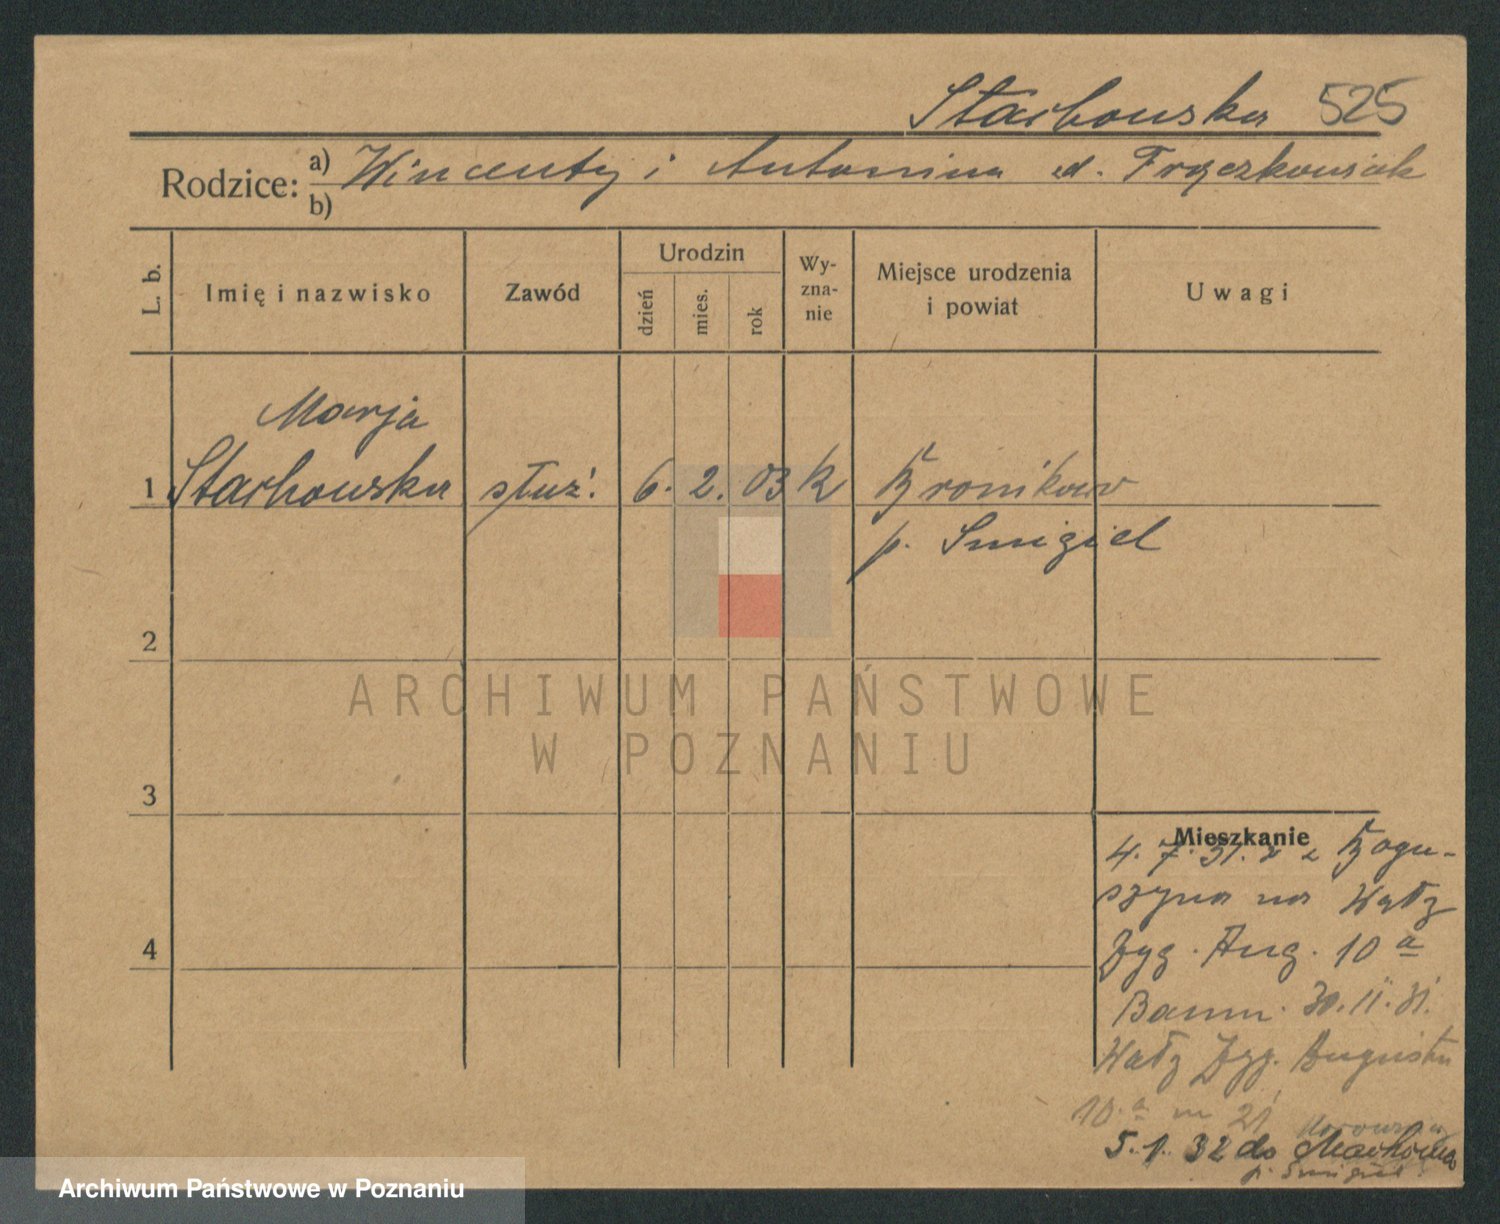 Starkowska 525
Rodzice: a) Wincenty i Antonina d. Frączkowiak
b)
L. b.
Imię i nazwisko
Zawód
Urodzin
dzień
mies.
rok
Wy-
zna-
nie
Miejsce urodzenia
i powiat
Uwagi
Marja
1 Starkowska służ. 6. 2. 03 k Bronikowo
p. Smigiel
2
3
4
Mieszkanie
4. 7. 31. z Bogu-
szyna na Wały
Zyg. Aug. 10 a
Baum. 30.11.31.
Wały Zyg. Augusta
10 a m 21
5. 1. 32 do
p. Smigiel
ARCHIWUM PAŃSTWOWE
W POZNANIU
Archiwum Państwowe w Poznaniu